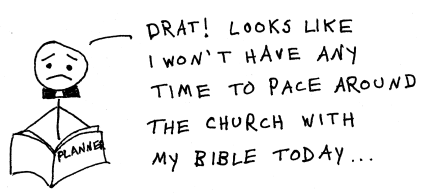 DRAT! LOOKS LIKE
I WON'T HAVE ANY
TIME TO PACE AROUND
THE CHURCH WITH
MY BIBLE TODAY...
PLANNER